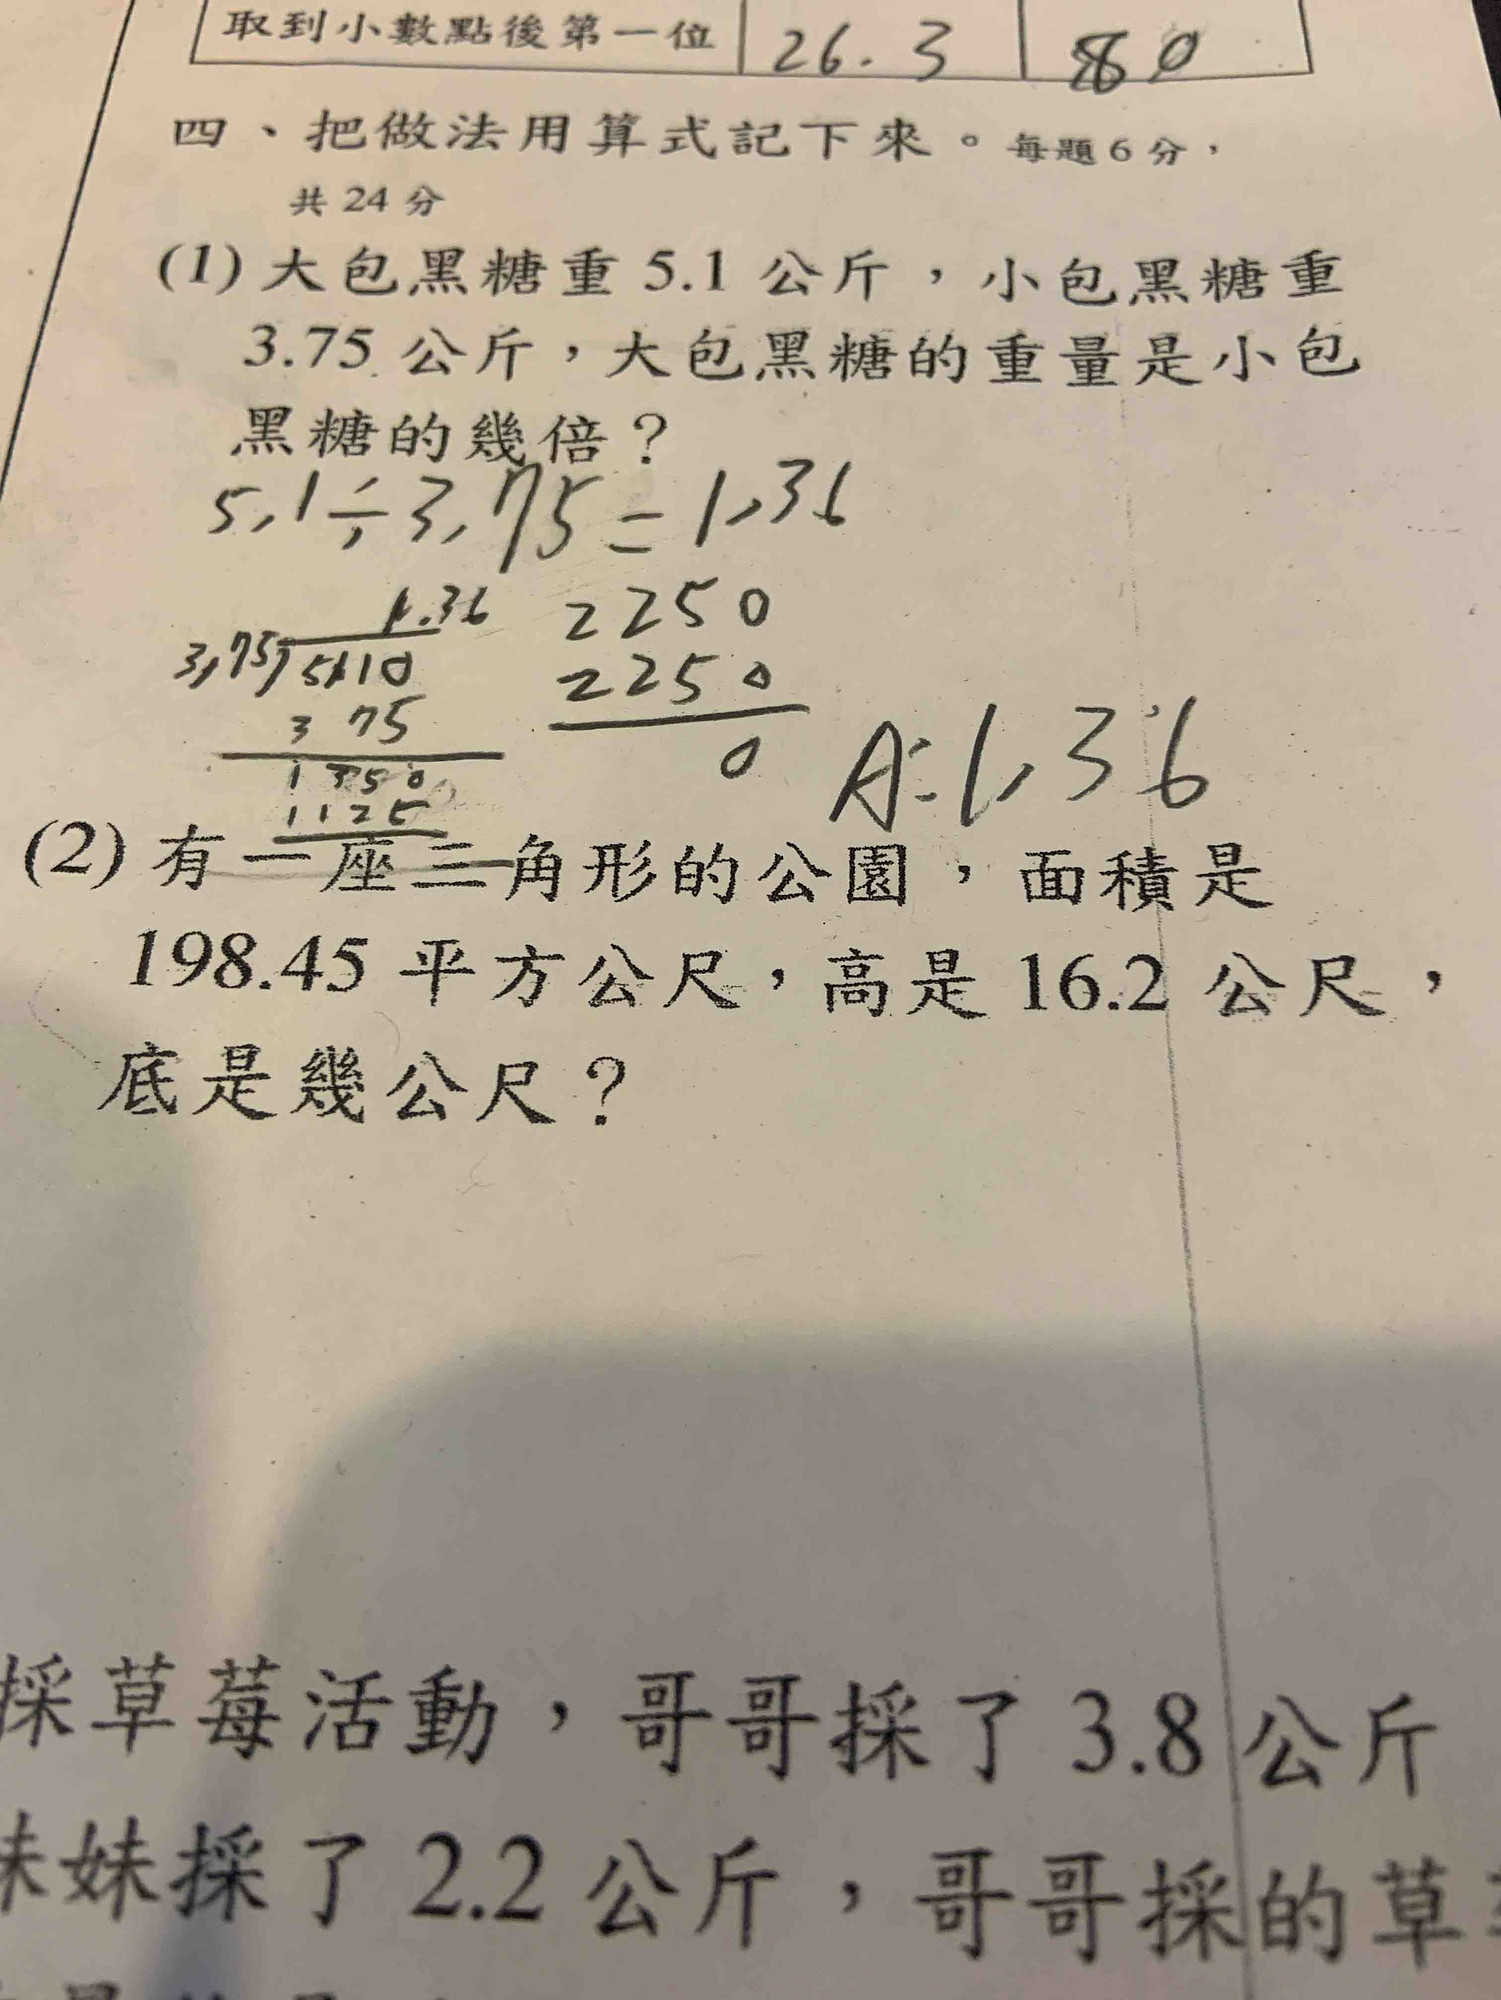 取到小數點後第一位 26.3 80
四、把做法用算式記下來。每題6分，
共24分
(1)大包黑糖重5.1公斤，小包黑糖重
3.75公斤，大包黑糖的重量是小包
黑糖的幾倍？
5.1÷3.75=1.36
1.36
3.75 5.10
375
1350
1125
2250
2250
0
A:1.36
(2)有一座三角形的公園，面積是
198.45平方公尺，高是16.2公尺，
底是幾公尺？
採草莓活動，哥哥採了3.8公斤
妹妹採了2.2公斤，哥哥採的草